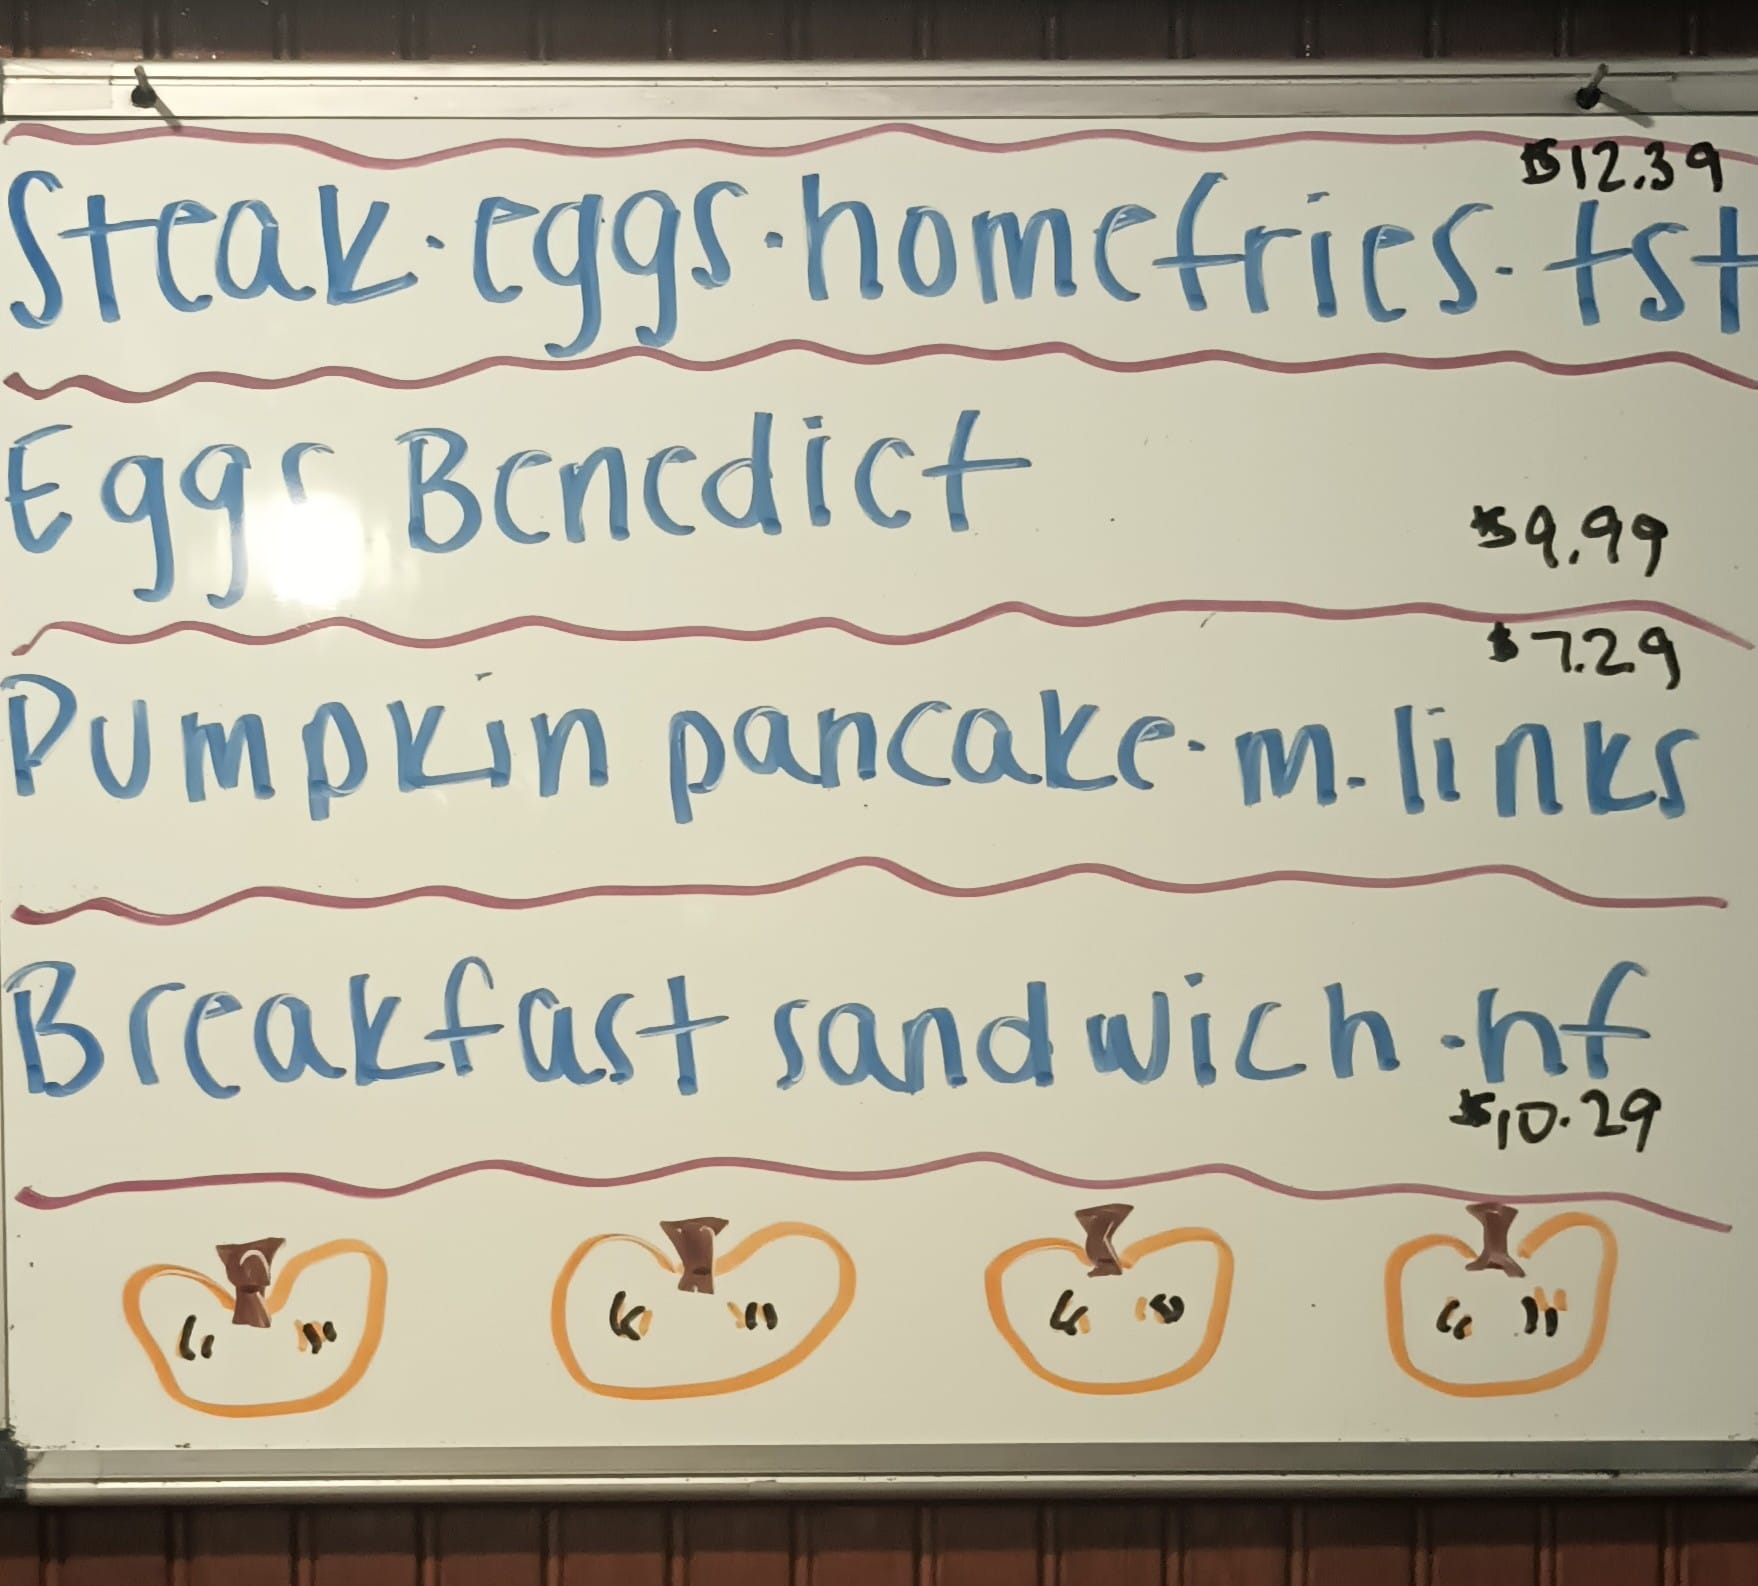 $12.39
Steak·eggs·homefries·tst
Eggs Benedict
$9.99
$7.29
Pumpkin pancake·m.links
Breakfast sandwich·hf
$10.29